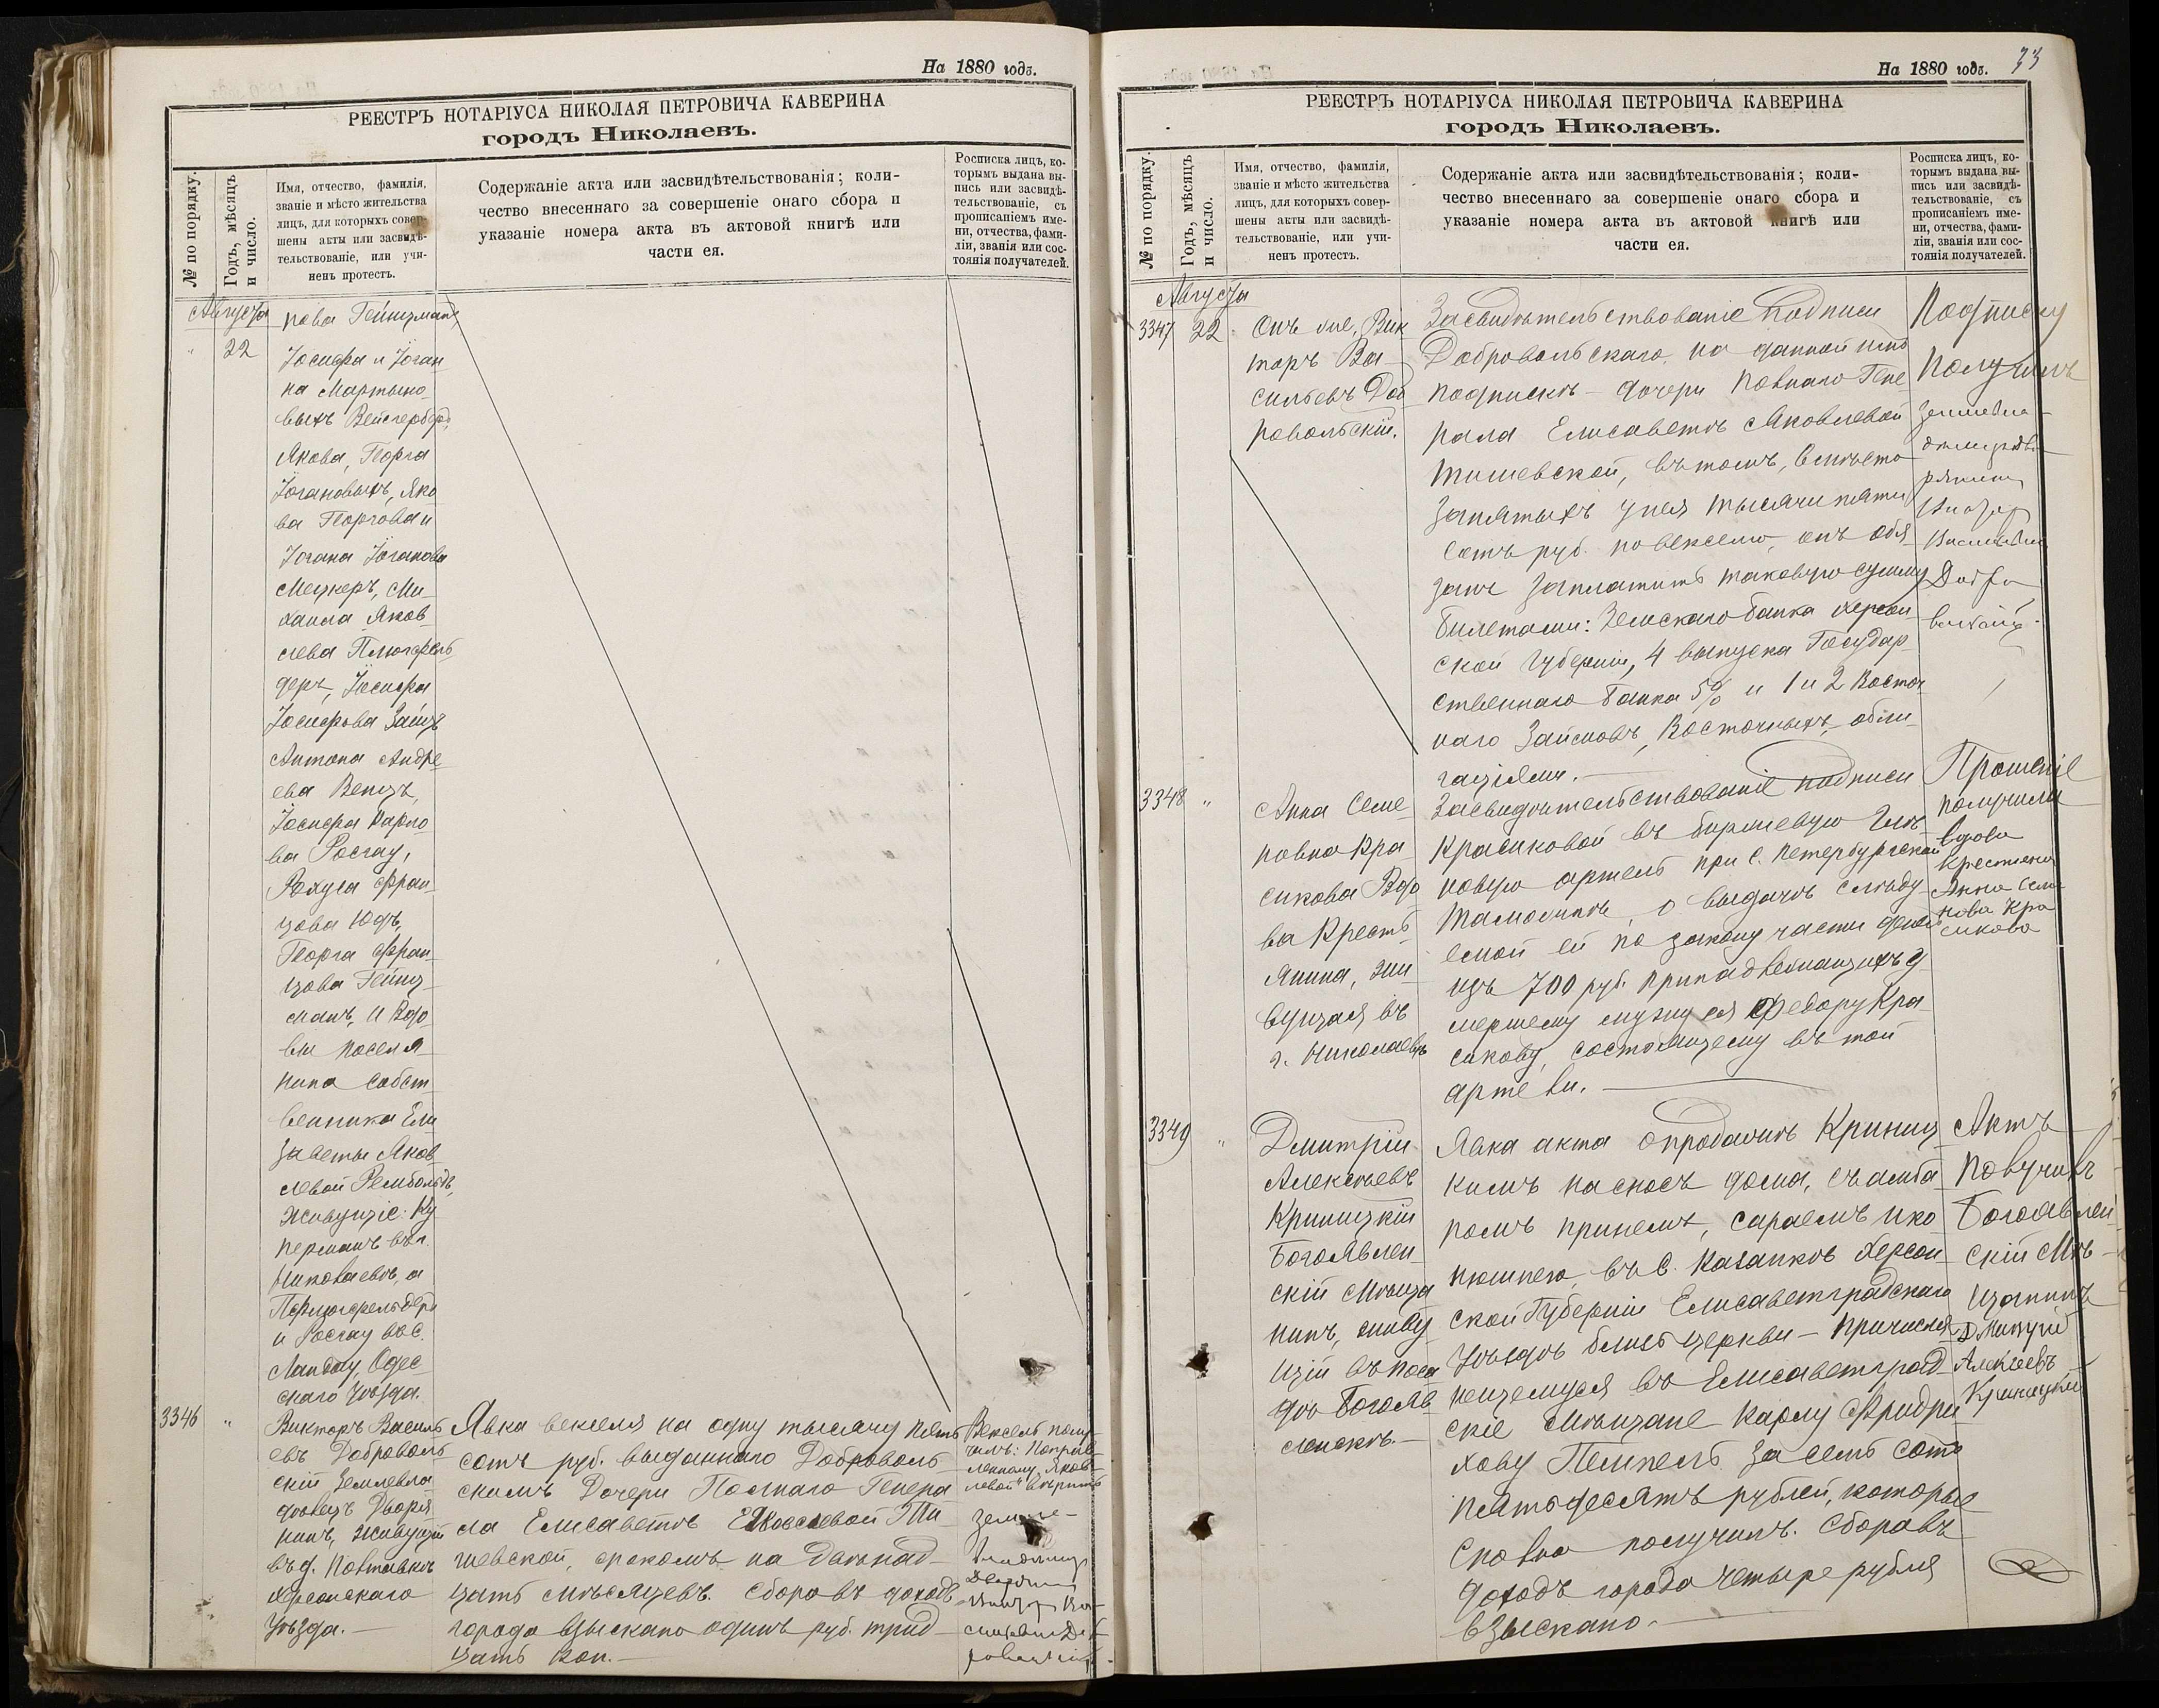 На 1880 годъ.
РЕЕСТРЪ НОТАРІУСА НИКОЛАЯ ПЕТРОВИЧА КАВЕРИНА
городъ Николаевъ.
№ по порядку.
Годъ, мѣсяцъ и число.
Имя, отчество, фамилія,
званіе и мѣсто жительства
лицъ, для которыхъ совер-
шены акты или засвидѣ-
тельствованіе, или учи-
ненъ протестъ.
Содержаніе акта или засвидѣтельствованія; коли-
чество внесеннаго за совершеніе онаго сбора и
указаніе номера акта въ актовой книгѣ или
части ея.
Росписка лицъ, ко-
торымъ выдана вы-
пись или засвидѣ-
тельствованіе, съ
прописаніемъ име-
ни, отчества, фами-
ліи, званія или сос-
тоянія получателей.
Августа
" 22
Іосифа и Іоган
на Мартыно-
выхъ
Якова, Георга
Іогановыхъ, Яко
ва Георгова и
Іогана Іоганова
Мецкеръ, Ми-
хаила Яков-
лева
деръ, Іосифа
Іосифова Зайцъ
Антона Андре
ева Венцъ,
Іосифа Карло
ва Росгау,
Рохуса Фран-
цова Юдъ,
Георга Фран-
цова Гейнц-
манъ, и Вдо-
вы поселя-
нина собст
венника Ели
заветы Яков-
левой Рембольдъ,
Живущіе: Ку
перманъ въ г.
Николаевѣ, а
и Росгау въ с.
Ландау, Одес-
скаго уѣзда.
3346 "
Викторъ Василь
евъ Доброволь
скій Землевла
дѣлецъ Дворя
нинъ, живущій
въ д. Полтавкѣ
Херсонскаго
Уѣзда.—
Явка векселя на одну тысячу пять
сотъ руб. выданнаго Доброволь-
скимъ Дочери Полнаго Генера
ла Елисаветѣ Яковлевой Ти-
шевской, срокомъ на двѣнад-
цать мѣсяцевъ. Сбора въ доходъ
города взыскано одинъ руб. трид
цать коп.—
Вексель полу
чилъ:
На 1880 годъ. 73
РЕЕСТРЪ НОТАРІУСА НИКОЛАЯ ПЕТРОВИЧА КАВЕРИНА
городъ Николаевъ.
№ по порядку.
Годъ, мѣсяцъ и число.
Имя, отчество, фамилія,
званіе и мѣсто жительства
лицъ, для которыхъ совер-
шены акты или засвидѣ-
тельствованіе, или учи-
ненъ протестъ.
Содержаніе акта или засвидѣтельствованія; коли-
чество внесеннаго за совершеніе онаго сбора и
указаніе номера акта въ актовой книгѣ или
части ея.
Росписка лицъ, ко-
торымъ выдана вы-
пись или засвидѣ-
тельствованіе, съ
прописаніемъ име-
ни, отчества, фами-
ліи, званія или сос-
тоянія получателей.
Августа
3347 22
Онъ же, Вик
торъ Ва-
сильевъ Доб
ровольскій.
Засвидѣтельствованіе подписи
Добровольскаго, на данной имъ
подпискѣ — дочери полнаго Гене
рала Елисаветѣ Яковлевой
Тишевской, въ томъ, вмѣсто
занятыхъ у нея тысячи пяти
сотъ руб. по векселю, онъ обя-
занъ заплатить таковую сумму
билетами: Земскаго банка Херсон-
ской Губерніи, 4 выпуска Государ-
ственнаго банка 5% и 1 и 2 Восточ
наго Займовъ, Восточныхъ, обли-
гаціями.—
Подписку
получилъ
3348 "
Анна Семе-
новна Кра-
сикова Вдо
ва Кресть
янина, жи-
вущая въ
г. Николаевѣ
Засвидѣтельствованіе подписи
Красиковой въ биржевую
новую артель при С. Петербургской
Таможнѣ, о выдачѣ слѣду-
емой ей по закону части денегъ
изъ 700 руб. принадлежащихъ у-
мершему мужу ея Федору Кра-
сикову, состоящему въ той
артели.—
Прошеніе
получила
вдова
крестьяни
Анна Семе
нова Кра
сикова
3349 "
Дмитрій
Алексѣевъ
Криницкій
Богоявлен-
скій Мѣща
нинъ, живу
щій въ поса
дѣ Богояв
ленскѣ.—
Явка акта о продажѣ Криниц-
кимъ на сносъ дома, съ амба-
ромъ при немъ, сараемъ и ко-
нюшнею, въ с. Казанкѣ Херсон-
ской Губерніи Елисаветградскаго
Уѣзда близь церкви — причисля-
ющемуся въ Елисаветград-
скіе Мѣщане Карлу Фридри
хову Темпель за семь сотъ
пятьдесятъ рублей, которые
сполна получилъ. Сбора въ
доходъ города четыре рубля
взыскано.—
Актъ
получилъ
Богоявлен-
скій Мѣ-
щанинъ
Дмитрій
Алексеевъ
Криницкій